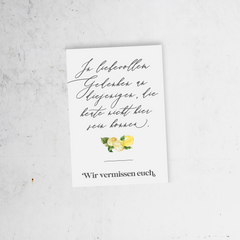 In liebevollem
Gedenken an
diejenigen, die
heute nicht hier
sein können.
Wir vermissen euch,